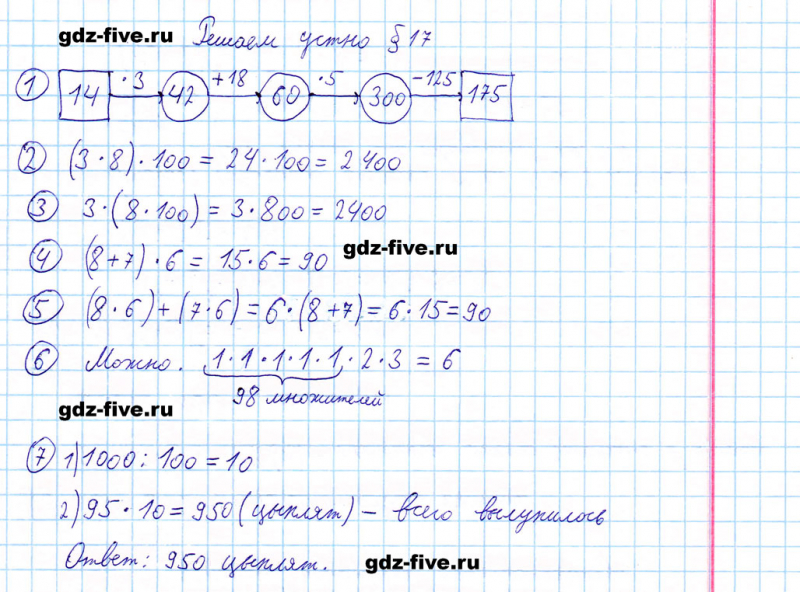 gdz-five.ru Решаем устно § 17
1 14 ·3 42 +18 60 ·5 300 -125 175
2 (3·8)·100 = 24·100 = 2400
3 3·(8·100) = 3·800 = 2400
gdz-five.ru
4 (8+7)·6 = 15·6 = 90
5 (8·6)+(7·6) = 6·(8+7) = 6·15 = 90
6 Можно. 1·1·1·1·1·2·3 = 6
98 множителей
gdz-five.ru
7 1) 1000 : 100 = 10
2) 95·10 = 950 (цыплят) – всего вылупилось
Ответ: 950 цыплят. gdz-five.ru